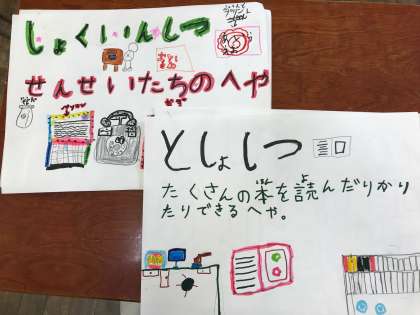 しょくいんしつ
せんせいたちのへや
としょしつ
たくさんの本を読んだりかり
たりできるへや。